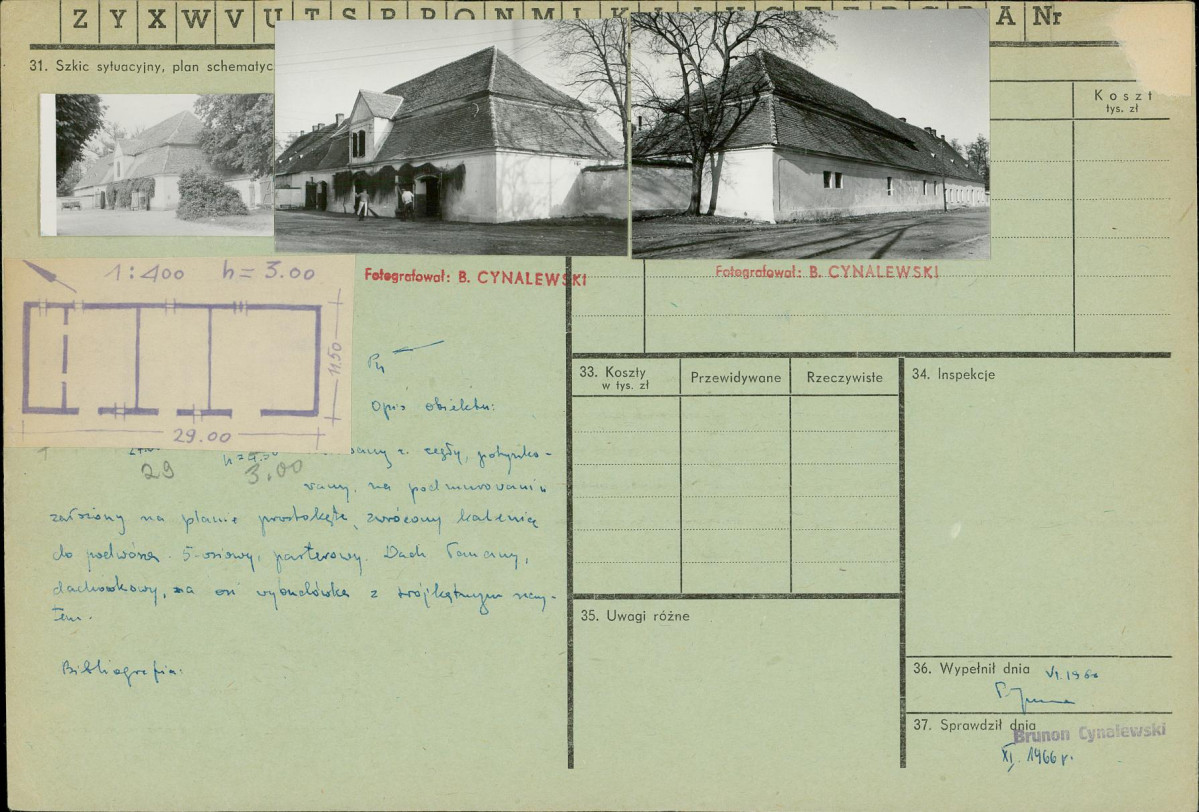 Z Y X W V U T S R P O N M L K J I H G F E D C B A Nr
31. Szkic sytuacyjny, plan schematyc
Koszt
tys. zł
1:400 h = 3.00
11.50
29.00
Fotografował: B. CYNALEWSKI
Fotografował: B. CYNALEWSKI
Opis obiektu:
z cegły, potynko-
29 3.00
wany, na podmurowaniu
założony na planie prostokąta, zwrócony kalenicą
do podwórza. 5-osiowy, parterowy. Dach łamany,
dachówkowy, na osi wybudówka z trójkątnym szczy-
tem.
Bibliografia:
33. Koszty
w tys. zł
Przewidywane
Rzeczywiste
34. Inspekcje
35. Uwagi różne
36. Wypełnił dnia VI.196
37. Sprawdził dnia
Brunon Cynalewski
XI. 1966 r.